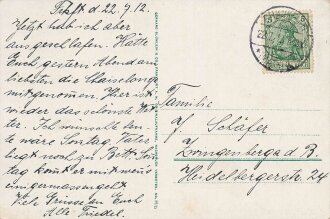 d 22.9.12.
Jetzt hab ich aber
ausgeschlafen. Hätte
Euch, gestern Abend am
liebsten die Chaiselongue
mitgenommen. Hier ist
wieder das schönste Wet-
ter. Ich wünschte heu-
te wäre Sontag. Vater
liegt noch zu Bett. Son-
tag könnt er mit
einigermassen
Viele Grüsse an Euch
Alle Friedel.
Familie
J. Schäfer
Zwingenberg a. d. B.
Heidelbergerstr. 24